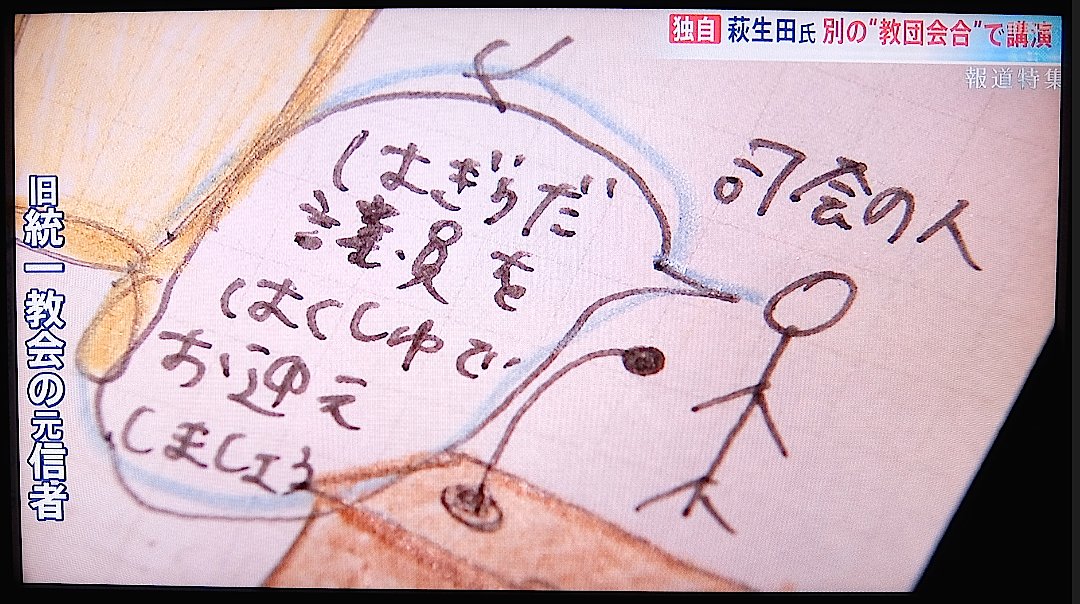 独自 萩生田氏 別の“教団会合”で講演
報道特集
司会の人
はぎうだ
議員を
はくしゅで
お迎え
しましょう
旧統一教会の元信者